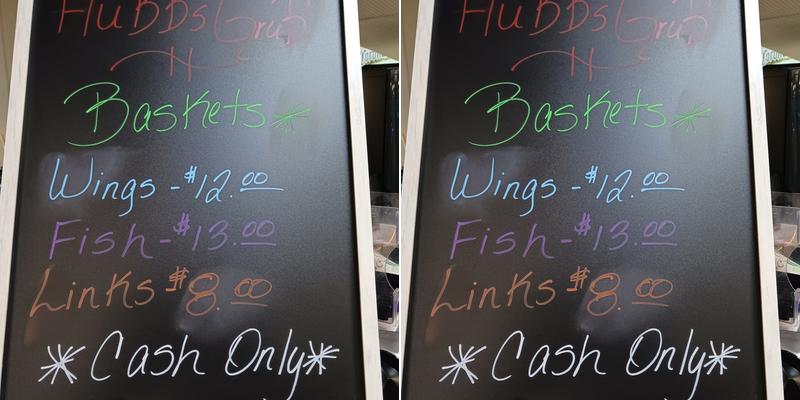 Hubbs Grub
Baskets*
Wings - $12.00
Fish - $13.00
Links $8.00
*Cash Only*
Hubbs Grub
Baskets*
Wings - $12.00
Fish - $13.00
Links $8.00
*Cash Only*